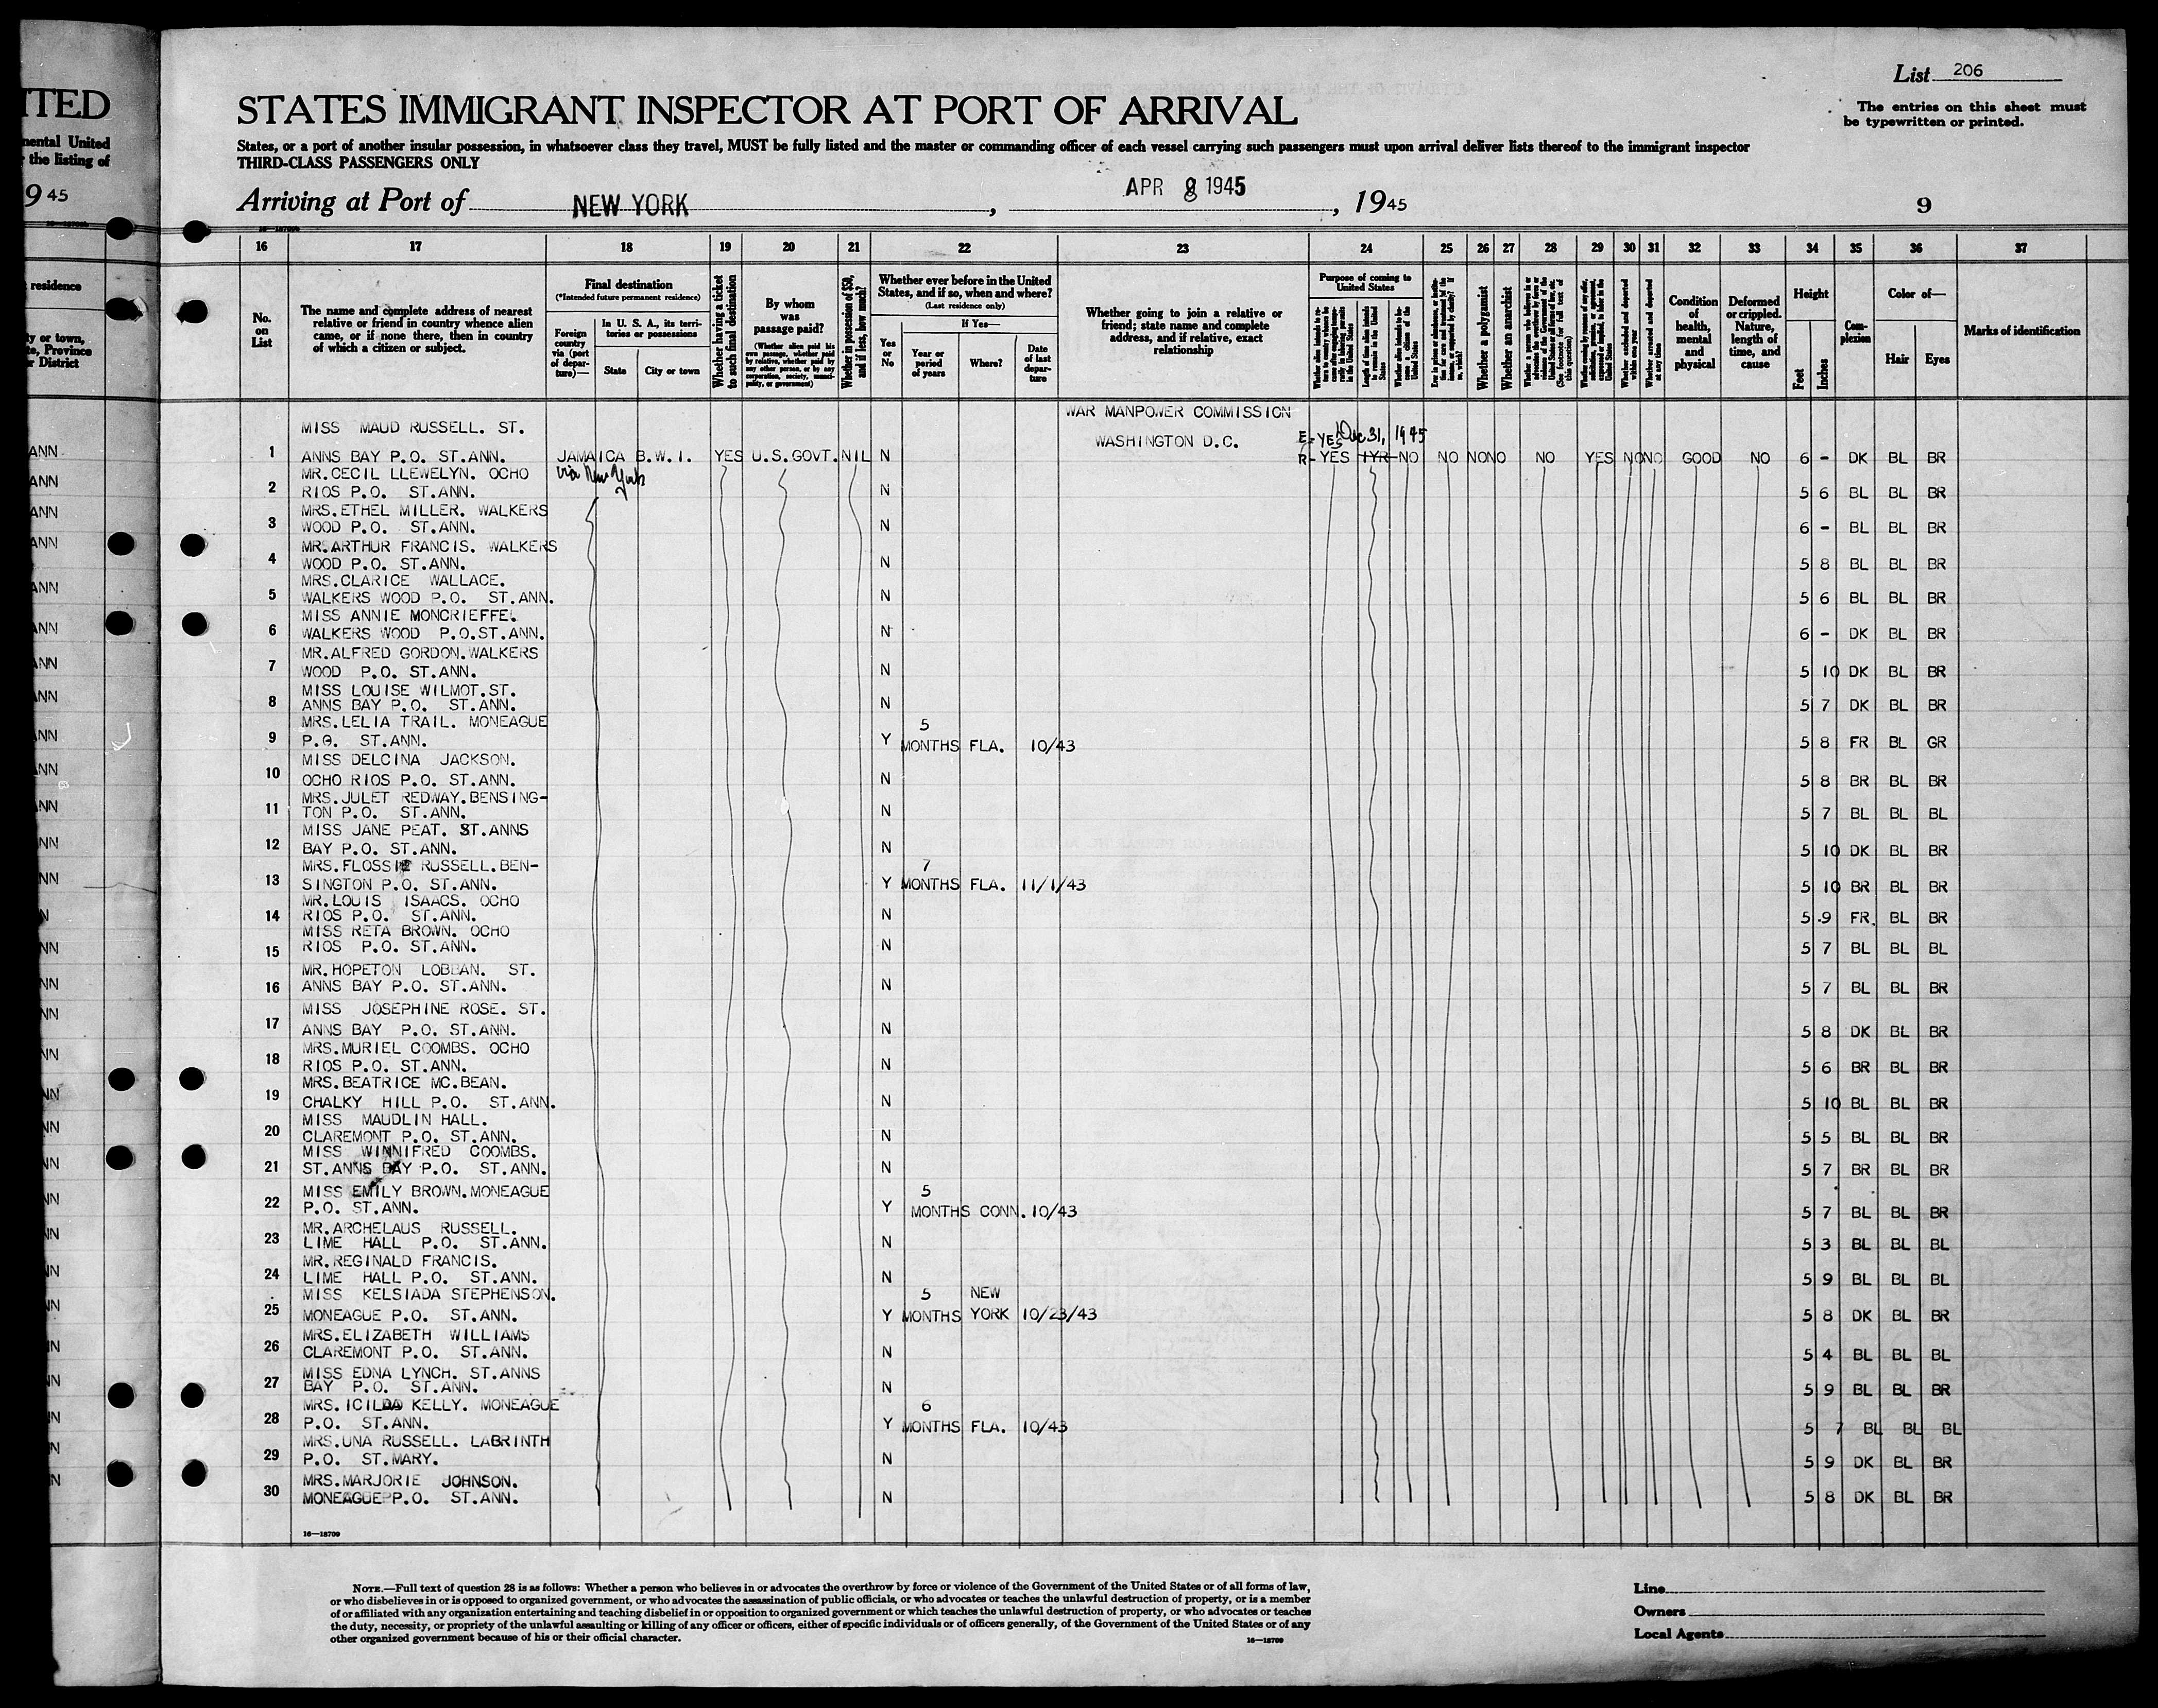 ITED
mental United
the listing of
9 45
residence
y or town,
te, Province
r District
List 206
STATES IMMIGRANT INSPECTOR AT PORT OF ARRIVAL
The entries on this sheet must
be typewritten or printed.
States, or a port of another insular possession, in whatsoever class they travel, MUST be fully listed and the master or commanding officer of each vessel carrying such passengers must upon arrival deliver lists thereof to the immigrant inspector
THIRD-CLASS PASSENGERS ONLY
Arriving at Port of NEW YORK, APR 8 1945, 1945
9
16 17 18 19 20 21 22 23 24 25 26 27 28 29 30 31 32 33 34 35 36 37
No. on List
The name and complete address of nearest relative or friend in country whence alien came, or if none there, then in country of which a citizen or subject.
Final destination
(*Intended future permanent residence)
Foreign country via (port of departure)—
In U. S. A., its territories or possessions
State
City or town
Whether having a ticket to such final destination
By whom was passage paid?
(Whether alien paid his own passage, whether paid by relative, whether paid by any other person, or by any corporation, society, municipality, or government)
Whether in possession of $50, and if less, how much?
Whether ever before in the United States, and if so, when and where?
(Last residence only)
Yes or No
If Yes—
Year or period of years
Where?
Date of last departure
Whether going to join a relative or friend; state name and complete address, and if relative, exact relationship
Purpose of coming to United States
Length of time alien intends to remain in the United States
Whether a polygamist
Whether an anarchist
Whether excluded and deported within one year
Whether arrested and deported at any time
Condition of health, mental and physical
Deformed or crippled. Nature, length of time, and cause
Height
Feet
Inches
Complexion
Color of—
Hair
Eyes
Marks of identification
WAR MANPOWER COMMISSION
MISS MAUD RUSSELL. ST.
WASHINGTON D.C. E-YES Dec 31, 1945
1 ANNS BAY P.O. ST.ANN. JAMAICA B.W.I. YES U.S.GOVT. NIL N R-YES 1YR NO NO NO NO NO YES NO NO GOOD NO 6 - DK BL BR
MR.CECIL LLEWELYN. OCHO via New York
2 RIOS P.O. ST.ANN. N 5 6 BL BL BR
MRS.ETHEL MILLER. WALKERS
3 WOOD P.O. ST.ANN. N 6 - BL BL BR
MR.ARTHUR FRANCIS. WALKERS
4 WOOD P.O. ST.ANN. N 5 8 BL BL BR
MRS.CLARICE WALLACE.
5 WALKERS WOOD P.O. ST.ANN. N 5 6 BL BL BR
MISS ANNIE MONCRIEFFE.
6 WALKERS WOOD P.O.ST.ANN. N 6 - DK BL BR
MR.ALFRED GORDON.WALKERS
7 WOOD P.O. ST.ANN. N 5 10 DK BL BR
MISS LOUISE WILMOT.ST.
8 ANNS BAY P.O. ST.ANN. N 5 7 DK BL BR
MRS.LELIA TRAIL. MONEAGUE 5
9 P.O. ST.ANN. Y MONTHS FLA. 10/43 5 8 FR BL GR
MISS DELCINA JACKSON.
10 OCHO RIOS P.O. ST.ANN. N 5 8 BR BL BR
MRS.JULET REDWAY.BENSING-
11 TON P.O. ST.ANN. N 5 7 BL BL BL
MISS JANE PEAT. ST.ANNS
12 BAY P.O. ST.ANN. N 5 10 DK BL BR
MRS.FLOSSIE RUSSELL.BEN- 7
13 SINGTON P.O. ST.ANN. Y MONTHS FLA. 11/1/43 5 10 BR BL BR
MR.LOUIS ISAACS. OCHO
14 RIOS P.O. ST.ANN. N 5 9 FR BL BR
MISS RETA BROWN. OCHO
15 RIOS P.O. ST.ANN. N 5 7 BL BL BL
MR.HOPETON LOBBAN. ST.
16 ANNS BAY P.O. ST.ANN. N 5 7 BL BL BR
MISS JOSEPHINE ROSE. ST.
17 ANNS BAY P.O. ST.ANN. N 5 8 DK BL BR
MRS.MURIEL COOMBS. OCHO
18 RIOS P.O. ST.ANN. N 5 6 BR BL BR
MRS.BEATRICE MC.BEAN.
19 CHALKY HILL P.O. ST.ANN. N 5 10 BL BL BR
MISS MAUDLIN HALL.
20 CLAREMONT P.O. ST.ANN. N 5 5 BL BL BR
MISS WINNIFRED COOMBS.
21 ST.ANNS BAY P.O. ST.ANN. N 5 7 BR BL BR
MISS EMILY BROWN.MONEAGUE 5
22 P.O. ST.ANN. Y MONTHS CONN. 10/43 5 7 BL BL BR
MR.ARCHELAUS RUSSELL.
23 LIME HALL P.O. ST.ANN. N 5 3 BL BL BL
MR.REGINALD FRANCIS.
24 LIME HALL P.O. ST.ANN. N 5 9 BL BL BL
MISS KELSIADA STEPHENSON. 5 NEW
25 MONEAGUE P.O. ST.ANN. Y MONTHS YORK 10/23/43 5 8 DK BL BR
MRS.ELIZABETH WILLIAMS
26 CLAREMONT P.O. ST.ANN. N 5 4 BL BL BL
MISS EDNA LYNCH. ST.ANNS
27 BAY P.O. ST.ANN. N 5 9 BL BL BR
MRS. ICILDA KELLY. MONEAGUE 6
28 P.O. ST.ANN. Y MONTHS FLA. 10/43 5 7 BL BL BL
MRS.UNA RUSSELL. LABRINTH
29 P.O. ST.MARY. N 5 9 DK BL BR
MRS.MARJORIE JOHNSON.
30 MONEAGUE P.O. ST.ANN. N 5 8 DK BL BR
16—18709
NOTE.—Full text of question 28 is as follows: Whether a person who believes in or advocates the overthrow by force or violence of the Government of the United States or of all forms of law,
or who disbelieves in or is opposed to organized government, or who advocates the assassination of public officials, or who advocates or teaches the unlawful destruction of property, or is a member
of or affiliated with any organization entertaining and teaching disbelief in or opposition to organized government or which teaches the unlawful destruction of property, or who advocates or teaches
the duty, necessity, or propriety of the unlawful assaulting or killing of any officer or officers, either of specific individuals or of officers generally, of the Government of the United States or of any
other organized government because of his or their official character.
16—18709
Line
Owners
Local Agents